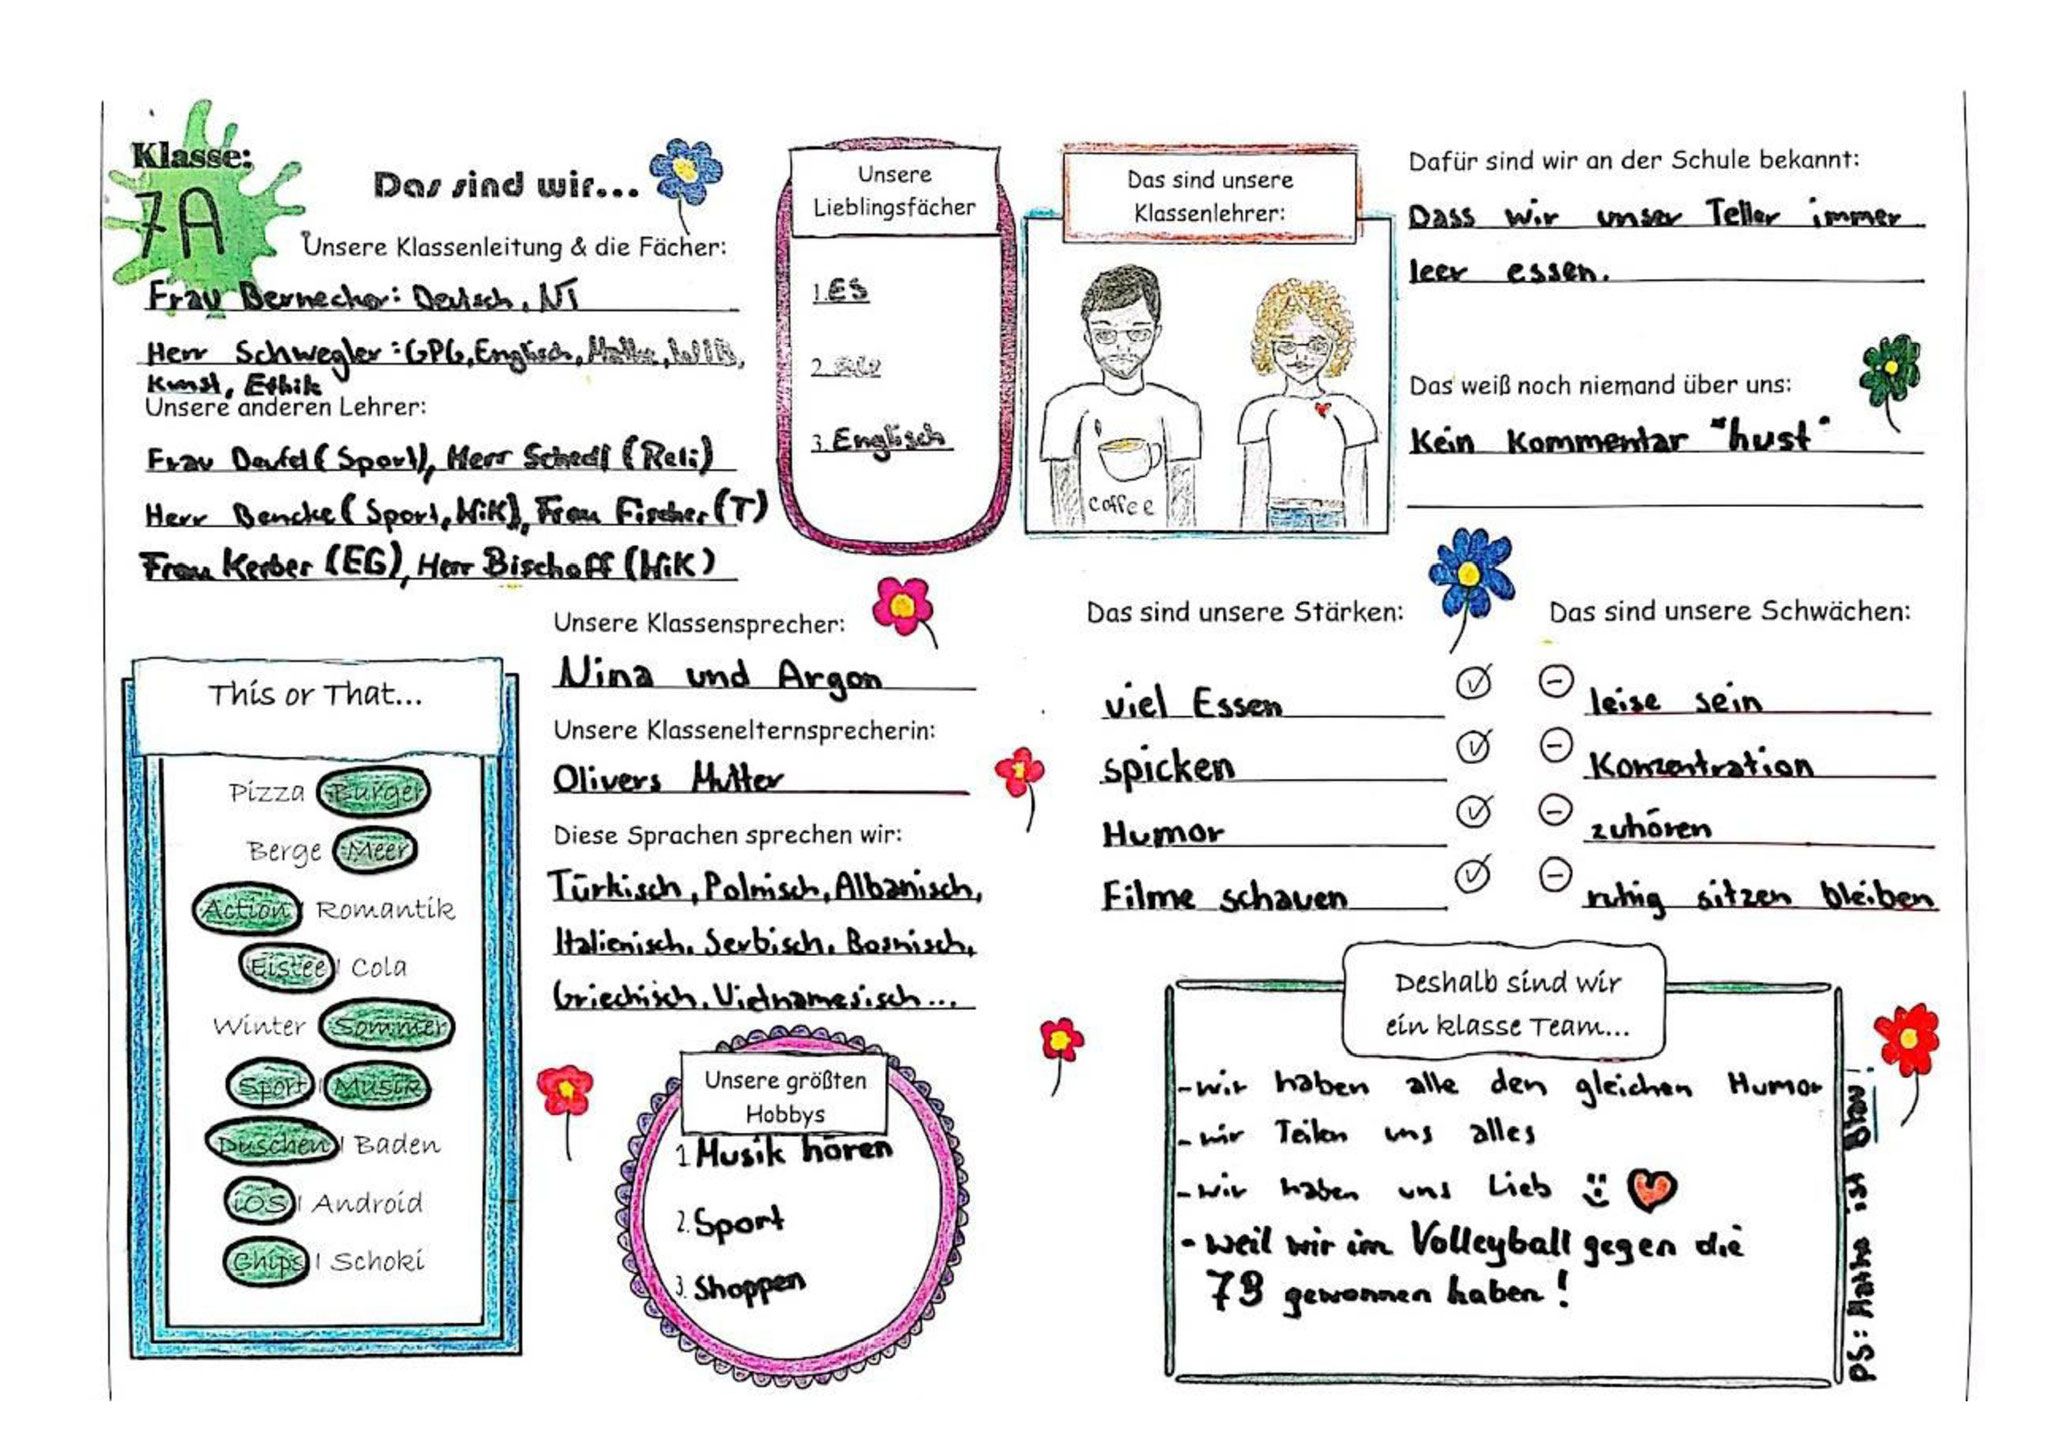 Klasse:
7A
Das sind wir...
Unsere Klassenleitung & die Fächer:
Frau Bernecker: Deutsch, NT
Herr Schwegler: GPG, Englisch, Mathe, WIB,
Kunst, Ethik
Unsere anderen Lehrer:
Frau Deufel (Sport), Herr Schedl (Reli)
Herr Bencke (Sport, WiK), Frau Fischer (T)
Frau Kerber (EG), Herr Bischoff (WiK)
Unsere
Lieblingsfächer
1. ES
2.
3. Englisch
Das sind unsere
Klassenlehrer:
coffee
Dafür sind wir an der Schule bekannt:
Dass wir unser Teller immer
leer essen.
Das weiß noch niemand über uns:
Kein Kommentar "hust"
This or That...
Pizza Burger
Berge Meer
Action | Romantik
Eistee | Cola
Winter Sommer
Sport | Musik
Duschen | Baden
iOS | Android
Chips | Schoki
Unsere Klassensprecher:
Nina und Argon
Unsere Klassenelternsprecherin:
Olivers Mutter
Diese Sprachen sprechen wir:
Türkisch, Polnisch, Albanisch,
Italienisch, Serbisch, Bosnisch,
Griechisch, Vietnamesisch...
Unsere größten
Hobbys
1 Musik hören
2. Sport
3. Shoppen
Das sind unsere Stärken:
viel Essen
spicken
Humor
Filme schauen
Das sind unsere Schwächen:
leise sein
Konzentration
zuhören
ruhig sitzen bleiben
Deshalb sind wir
ein klasse Team...
- wir haben alle den gleichen Humor
- wir Teilen uns alles
- wir haben uns Lieb
- weil wir im Volleyball gegen die
7B gewonnen haben!
PS: Mathe ist Blau!